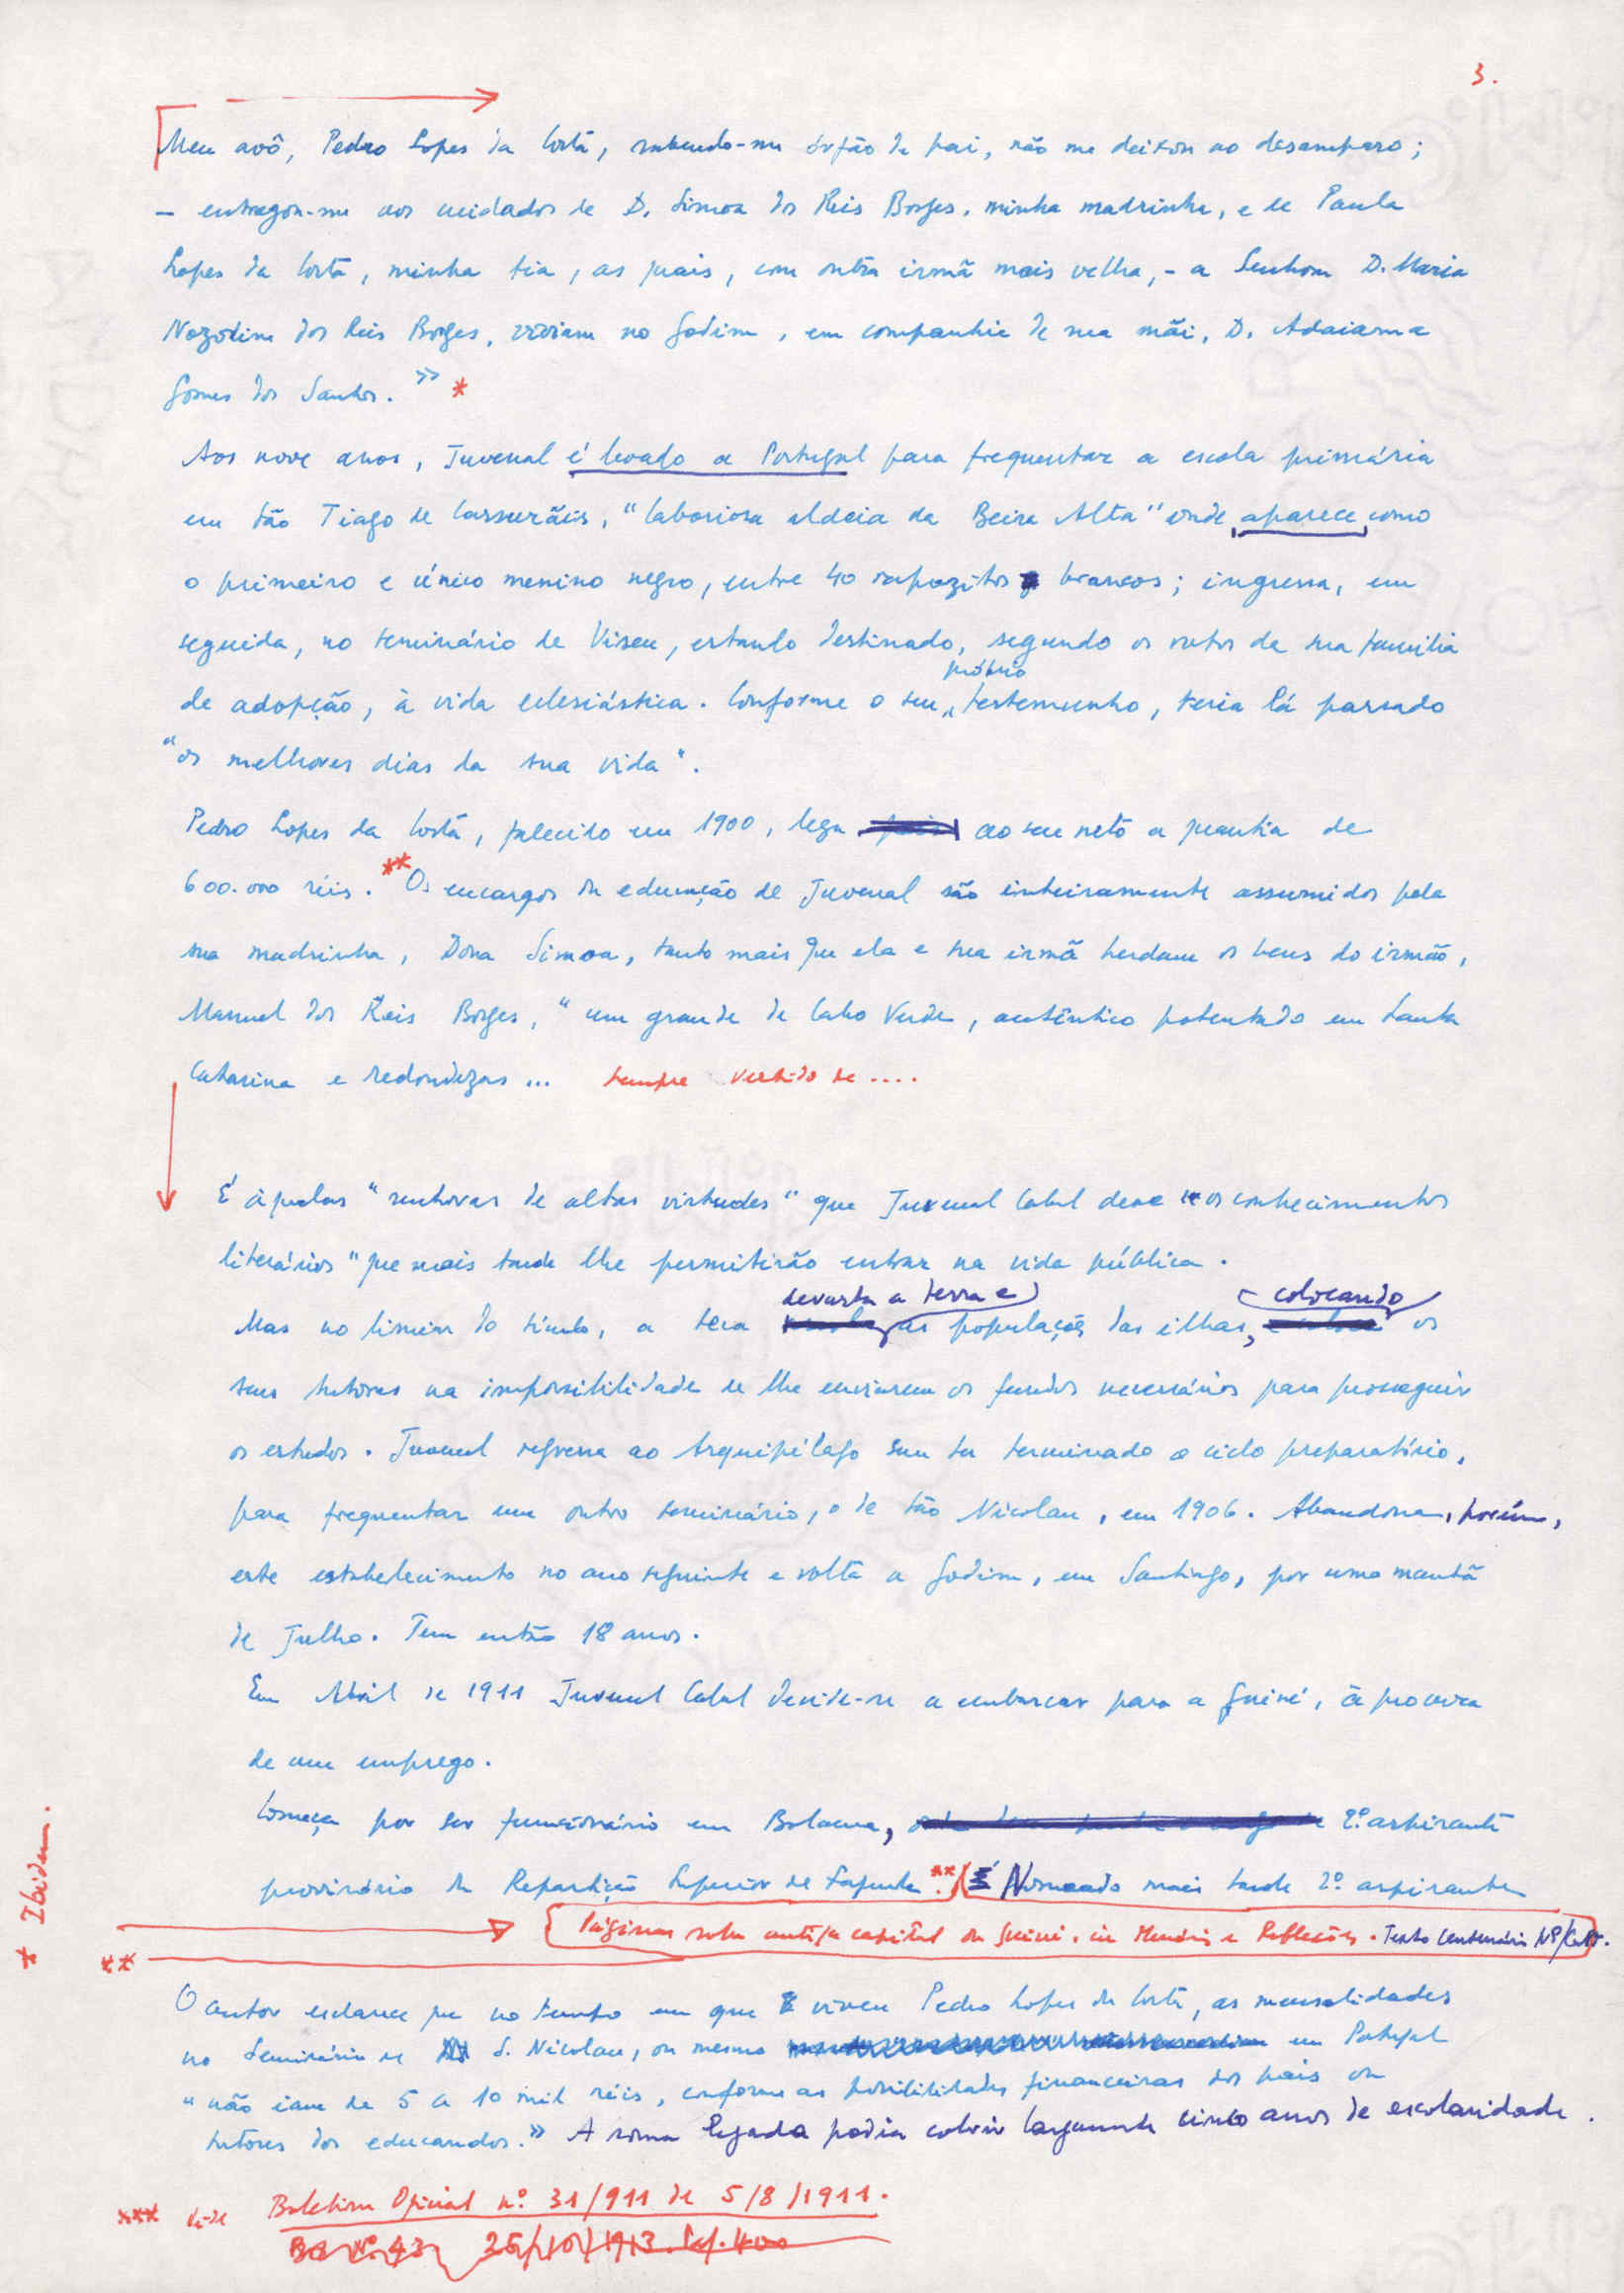 3.
Meu avô, Pedro Lopes da Costa, sabendo-me órfão de pai, não me deixou ao desamparo;
– entregou-me aos cuidados de D. Simoa dos Reis Borges, minha madrinha, e de Paula
Lopes da Costa, minha tia, as quais, com outra irmã mais velha, – a Senhora D. Maria
Nazolina dos Reis Borges, viviam no Godim, em companhia de sua mãi, D. Adaiama
Gomes dos Santos. » *
Aos nove anos, Juvenal é levado a Portugal para frequentar a escola primária
em São Tiago de Cassurães, "laboriosa aldeia da Beira Alta" onde, aparece, como
o primeiro e único menino negro, entre 40 rapazitos brancos; ingressa, em
seguida, no seminário de Viseu, estando destinado, segundo os votos da sua família
de adopção, à vida eclesiástica. Conforme o seu próprio testemunho, teria lá passado
"os melhores dias da sua vida".
Pedro Lopes da Costa, falecido em 1900, lega ao seu neto a quantia de
600.000 réis. ** Os encargos da educação de Juvenal são inteiramente assumidos pela
sua madrinha, Dona Simoa, tanto mais que ela e sua irmã herdam os bens do irmão,
Manuel dos Reis Borges, "um grande de Cabo Verde, autêntico potentado em Santa
Catarina e redondezas ... sempre vestido de ....
É àquelas "senhoras de altas virtudes" que Juvenal Cabral deve "os conhecimentos
literários" que mais tarde lhe permitirão entrar na vida pública.
Mas no limiar do século, a seca devasta a terra e as populações das ilhas, colocando os
seus tutores na impossibilidade de lhe enviarem os fundos necessários para prosseguir
os estudos. Juvenal regressa ao Arquipélago sem ter terminado o ciclo preparatório,
para frequentar um outro seminário, o de São Nicolau, em 1906. Abandona, porém,
este estabelecimento no ano seguinte e volta a Godim, em Santiago, por uma manhã
de Julho. Tem então 18 anos.
Em Abril de 1911 Juvenal Cabral decide-se a embarcar para a Guiné, à procura
de um emprego.
Começa por ser funcionário em Bolama, 2º. aspirante
provisório da Repartição Superior de Fazenda. ** É Nomeado mais tarde 2º. aspirante
Páginas sobre antiga capital da Guiné. in Memórias e Reflexões. Texto Centenário
* Ibidem.
**
O autor esclarece que no tempo em que viveu Pedro Lopes da Costa, as mensalidades
no Seminário de S. Nicolau, ou mesmo em Portugal
"não iam de 5 a 10 mil réis, conforme as possibilidades financeiras dos pais ou
tutores dos educandos." A soma legada podia cobrir largamente cinco anos de escolaridade.
*** Vide Boletim Oficial nº. 31/911 de 5/8/1911.
BO Nº. 43 25/10/1913. Pág. 400